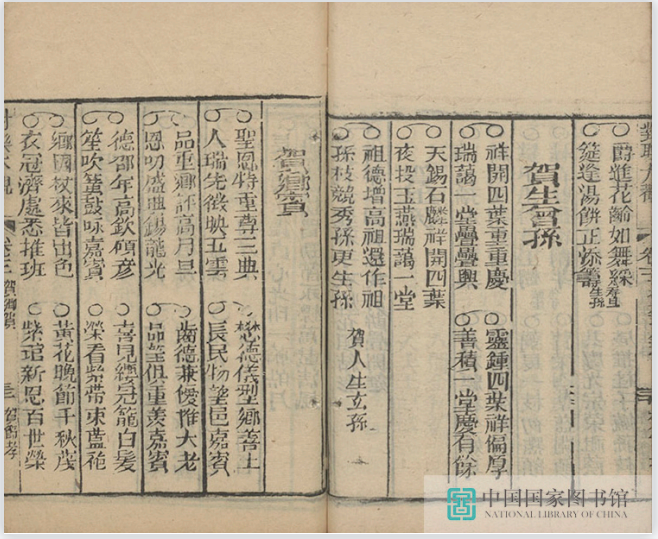 爵進花齡如舞綵 壽旦
筵逢湯餅正添籌 生孫
賀生曾孫
祥開四葉重重慶
瑞藹一堂疊疊興
靈鍾四葉祥偏厚
善積一堂慶有餘
天錫石麟祥開四葉
夜投玉燕瑞藹一堂
祖德增高祖還作祖
孫枝競秀孫更生孫
賀人生玄孫
賀鄉賓
聖恩特重尊三典
人瑞先徵映五雲
懋德儀型鄉善士
長民物望邑嘉賓
品重鄉評高月旦
恩叨盛典錫龍光
齒德兼優惟大老
品望俱重羡嘉賓
德邵年高欽碩彥
笙吹簧鼓咏嘉賓
喜見纓冠籠白髮
榮看紫帶束藍袍
鄉國杖來皆出色
衣冠濟處悉推班
黃花晚節千秋茂
紫誥新恩百世榮
賀鄉賓
中国国家图书馆
NATIONAL LIBRARY OF CHINA